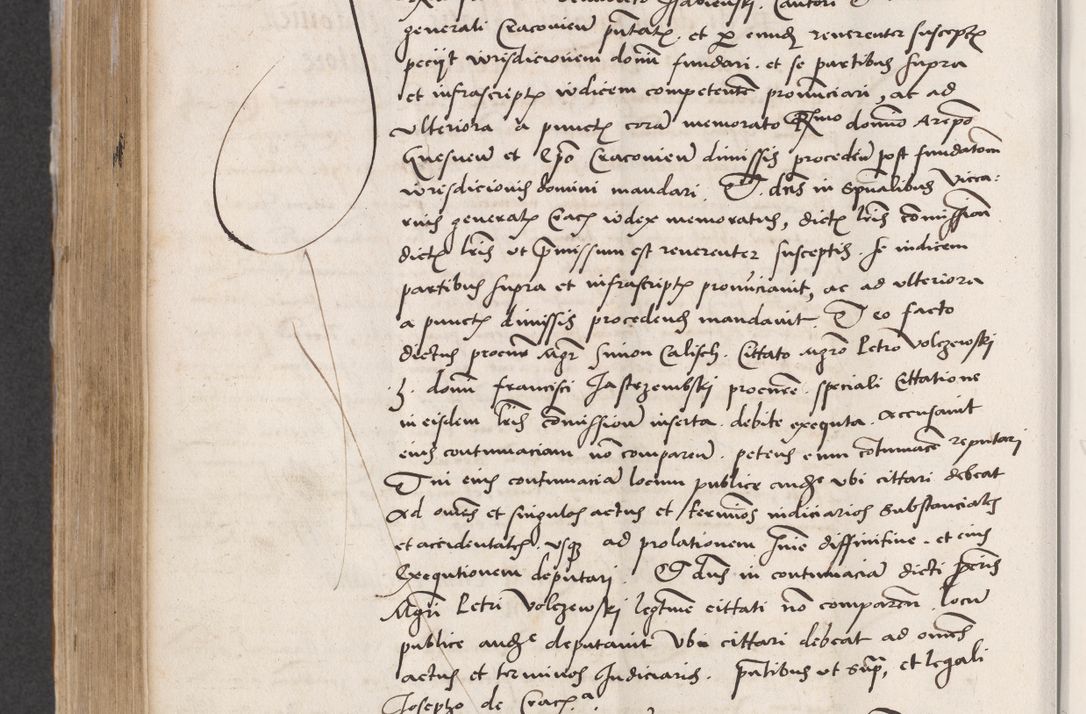 generali Cracovien putatx et p eundem reverenter suscepta
peciit iurisdicionem domini fundari et se partibus supra
et infrascriptis iudicem competentem pronunciari, ac ad
ulteriora a punctis coram memorato Rmo domino Arepo
Gnesnen et Epo Cracovien dimissis procedi post fundatam
iurisdicionis domini mandari. D. dns in spualibus vicca:
rius generalis Crac iudex memoratus, dictis lris comission
dictis lris ut premissum est reverenter susceptis se iudicem
partibus supra et infrascriptis pronunciavit, ac ad ulteriora
a punctis dimissis procedend mandavit. D eo facto
dictus procur Mgr Simon Calisch. Cittato Mgro Petro Volczewski
domini Francisci Jastrzembski procure speciali Cittatione
in eisdem lris comission inserta debite exequta. Accusavit
eius contumaciam no comparen. petens eum contumace reputari
D in eius contumacia locum publice audie ubi cittari debeat
Ad omnes et singulos actus et terminos iudiciarios substanciales
et accidentales usque ad prolationem snie diffinitive et eius
Exequtionem deputari. D dns in contumacia dicti
Mgri Petri Volczewski legtime cittati no comparen locu
publice audie deputavit Ubi cittari debeat ad omnes
actus et terminos Judiciarios. partibus ut sup, et legali
Josepho de Crac.